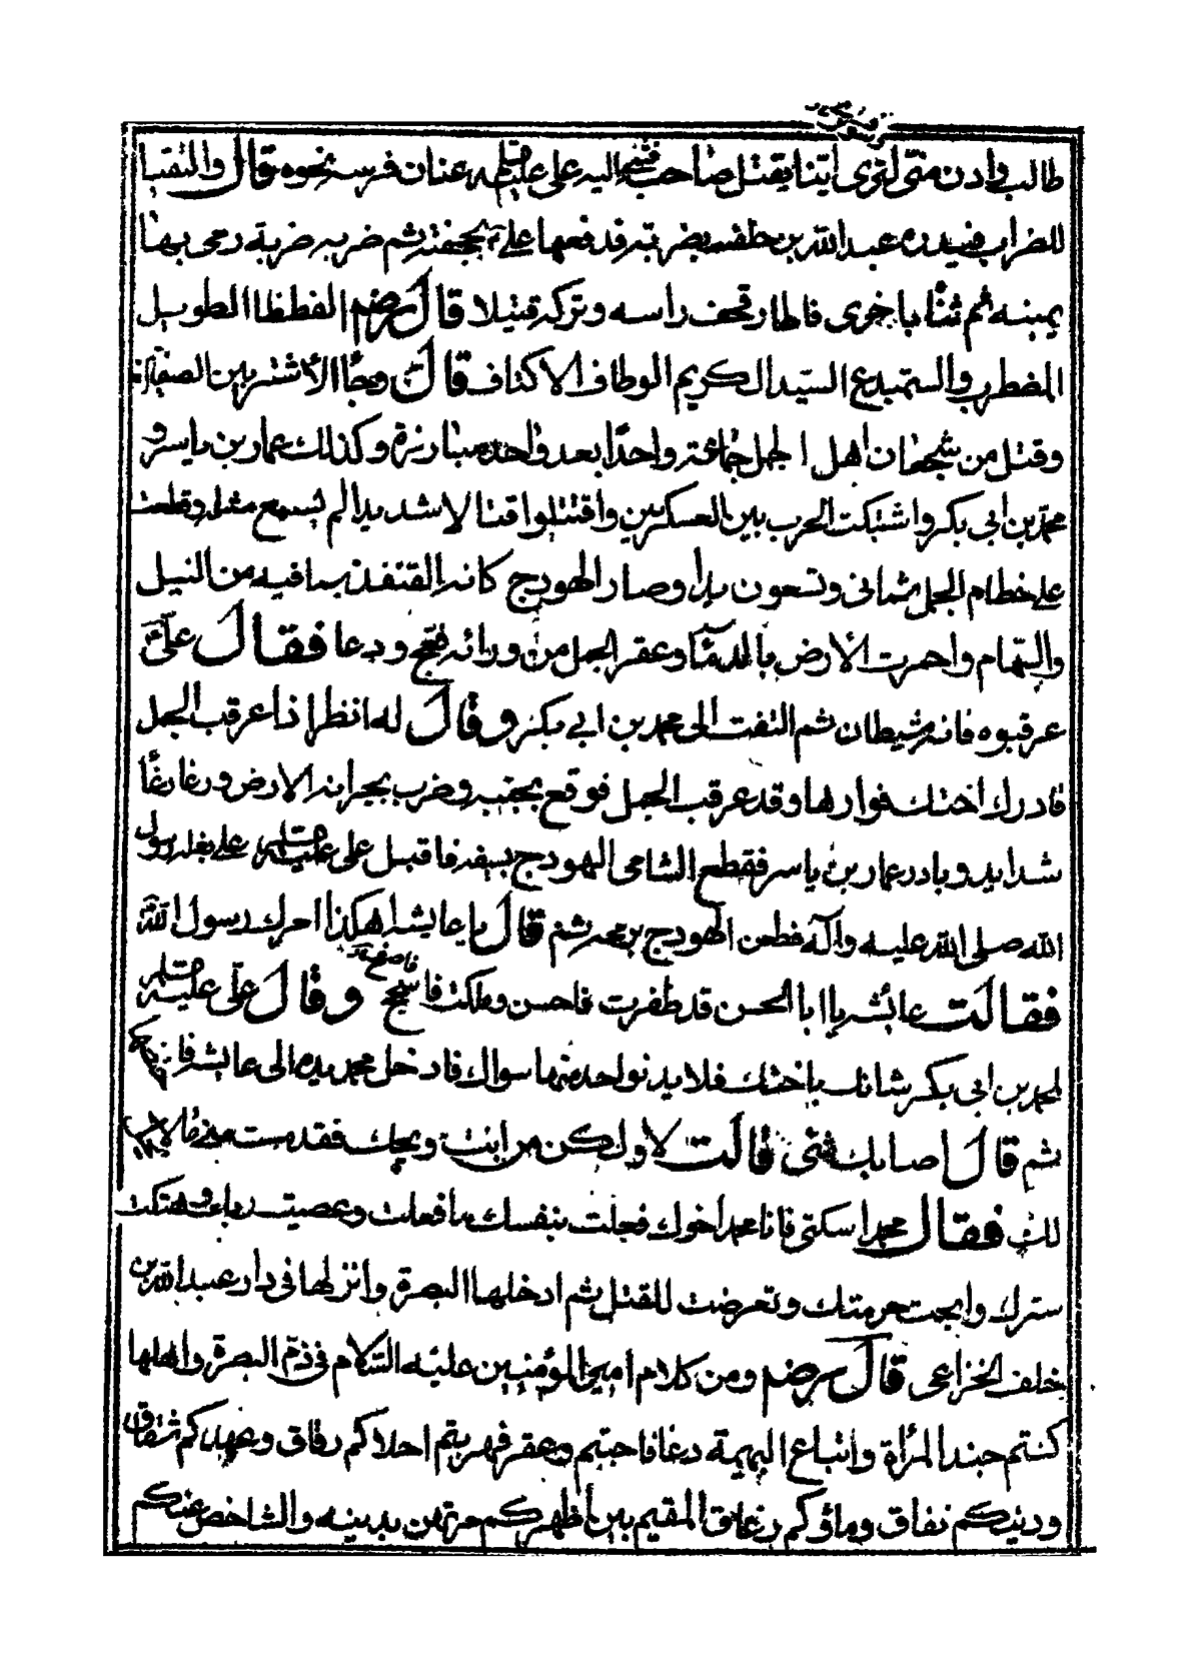 طالب وادن منى لترى اينا يقتل صاحبه فثنى اليه على عليه السلم عنان فرسه نحوه قال والتقيا
للضراب فبيدره عبد الله بن خلف بضربته فدفعها على بجحفته ثم ضربه ضربة رمى بها
يمينه ثم ثنا باخرى فاطار قحف راسه وتركه قتيلا قال رضه الفظفاا الطويل
المضطرب والستميدع السيد الكريم الوطاف الاكناف قال وجاا الأشتر بين الصفين
وقتل من شجعان اهل الجمل جماعة واحدًا بعد واحد مبارزة وكذلك عمار بن ياسر و
محمد بن ابي بكر واشتبكت الحرب بين العسكرين واقتتلوا قتالا شديدا لم يسمع مثله وقطعت
على خطام الجمل ثمانى وتسعون يدا وصار الهودج كانه القنفذ بما فيه من النبل
والسهام واحمرت الأرض بالدماء وعقر الجمل من ورائه فعج ودعا فقال علىّ
عرقبوه فانه شيطان ثم التفت الى محمد بن ابي بكر وقال له انظر اذا عرقب الجمل
فادرك اختك فوارها وقد عرقب الجمل فوقع بجنبه وضرب بجرانه الارض ورغا رغًا
شديد وبادر عمار بن ياسر فقطع الشاحى الهودج بسيفه فاقبل على عليه السلم على بغله رسول
الله صلى الله عليه وآله فطعن الهودج برمحه ثم قال يا عايشه اهكذا امرك رسول الله
فقالت عائشه يا ابا الحسن قد ظفرت فاحسن وملكت فاسجح فاصفح وقال علىّ عليه السلم
لمحمد بن ابي بكر شانك باختك فلا يدنو احد منها سواك فادخل محمد يده الى عايشه
ثم قال اصابك شى قالت لا ولكن من انت ويحك فقد مست منى مالا يحل
لك فقال محمد اسكتى فانا محمد اخوك فعلت بنفسك ما فعلت وعصيت ربك وهتكت
سترك وابحت حرمتك وتعرضت للقتل ثم ادخلها البصرة وانزلها فى دار عبد الله بن
خلف الخزاعى قال رضه ومن كلام امير المؤمنين عليه السلام فى ذم البصرة واهلها
كنتم جند المرأة واتباع البهيمة رغا فاجبتم وعقر فهربتم احلاكم رقاق وعهدكم شقاق
ودينكم نفاق وماؤكم زعاق المقيم بين أظهركم مرتهن بدينه والشاخص عنكم